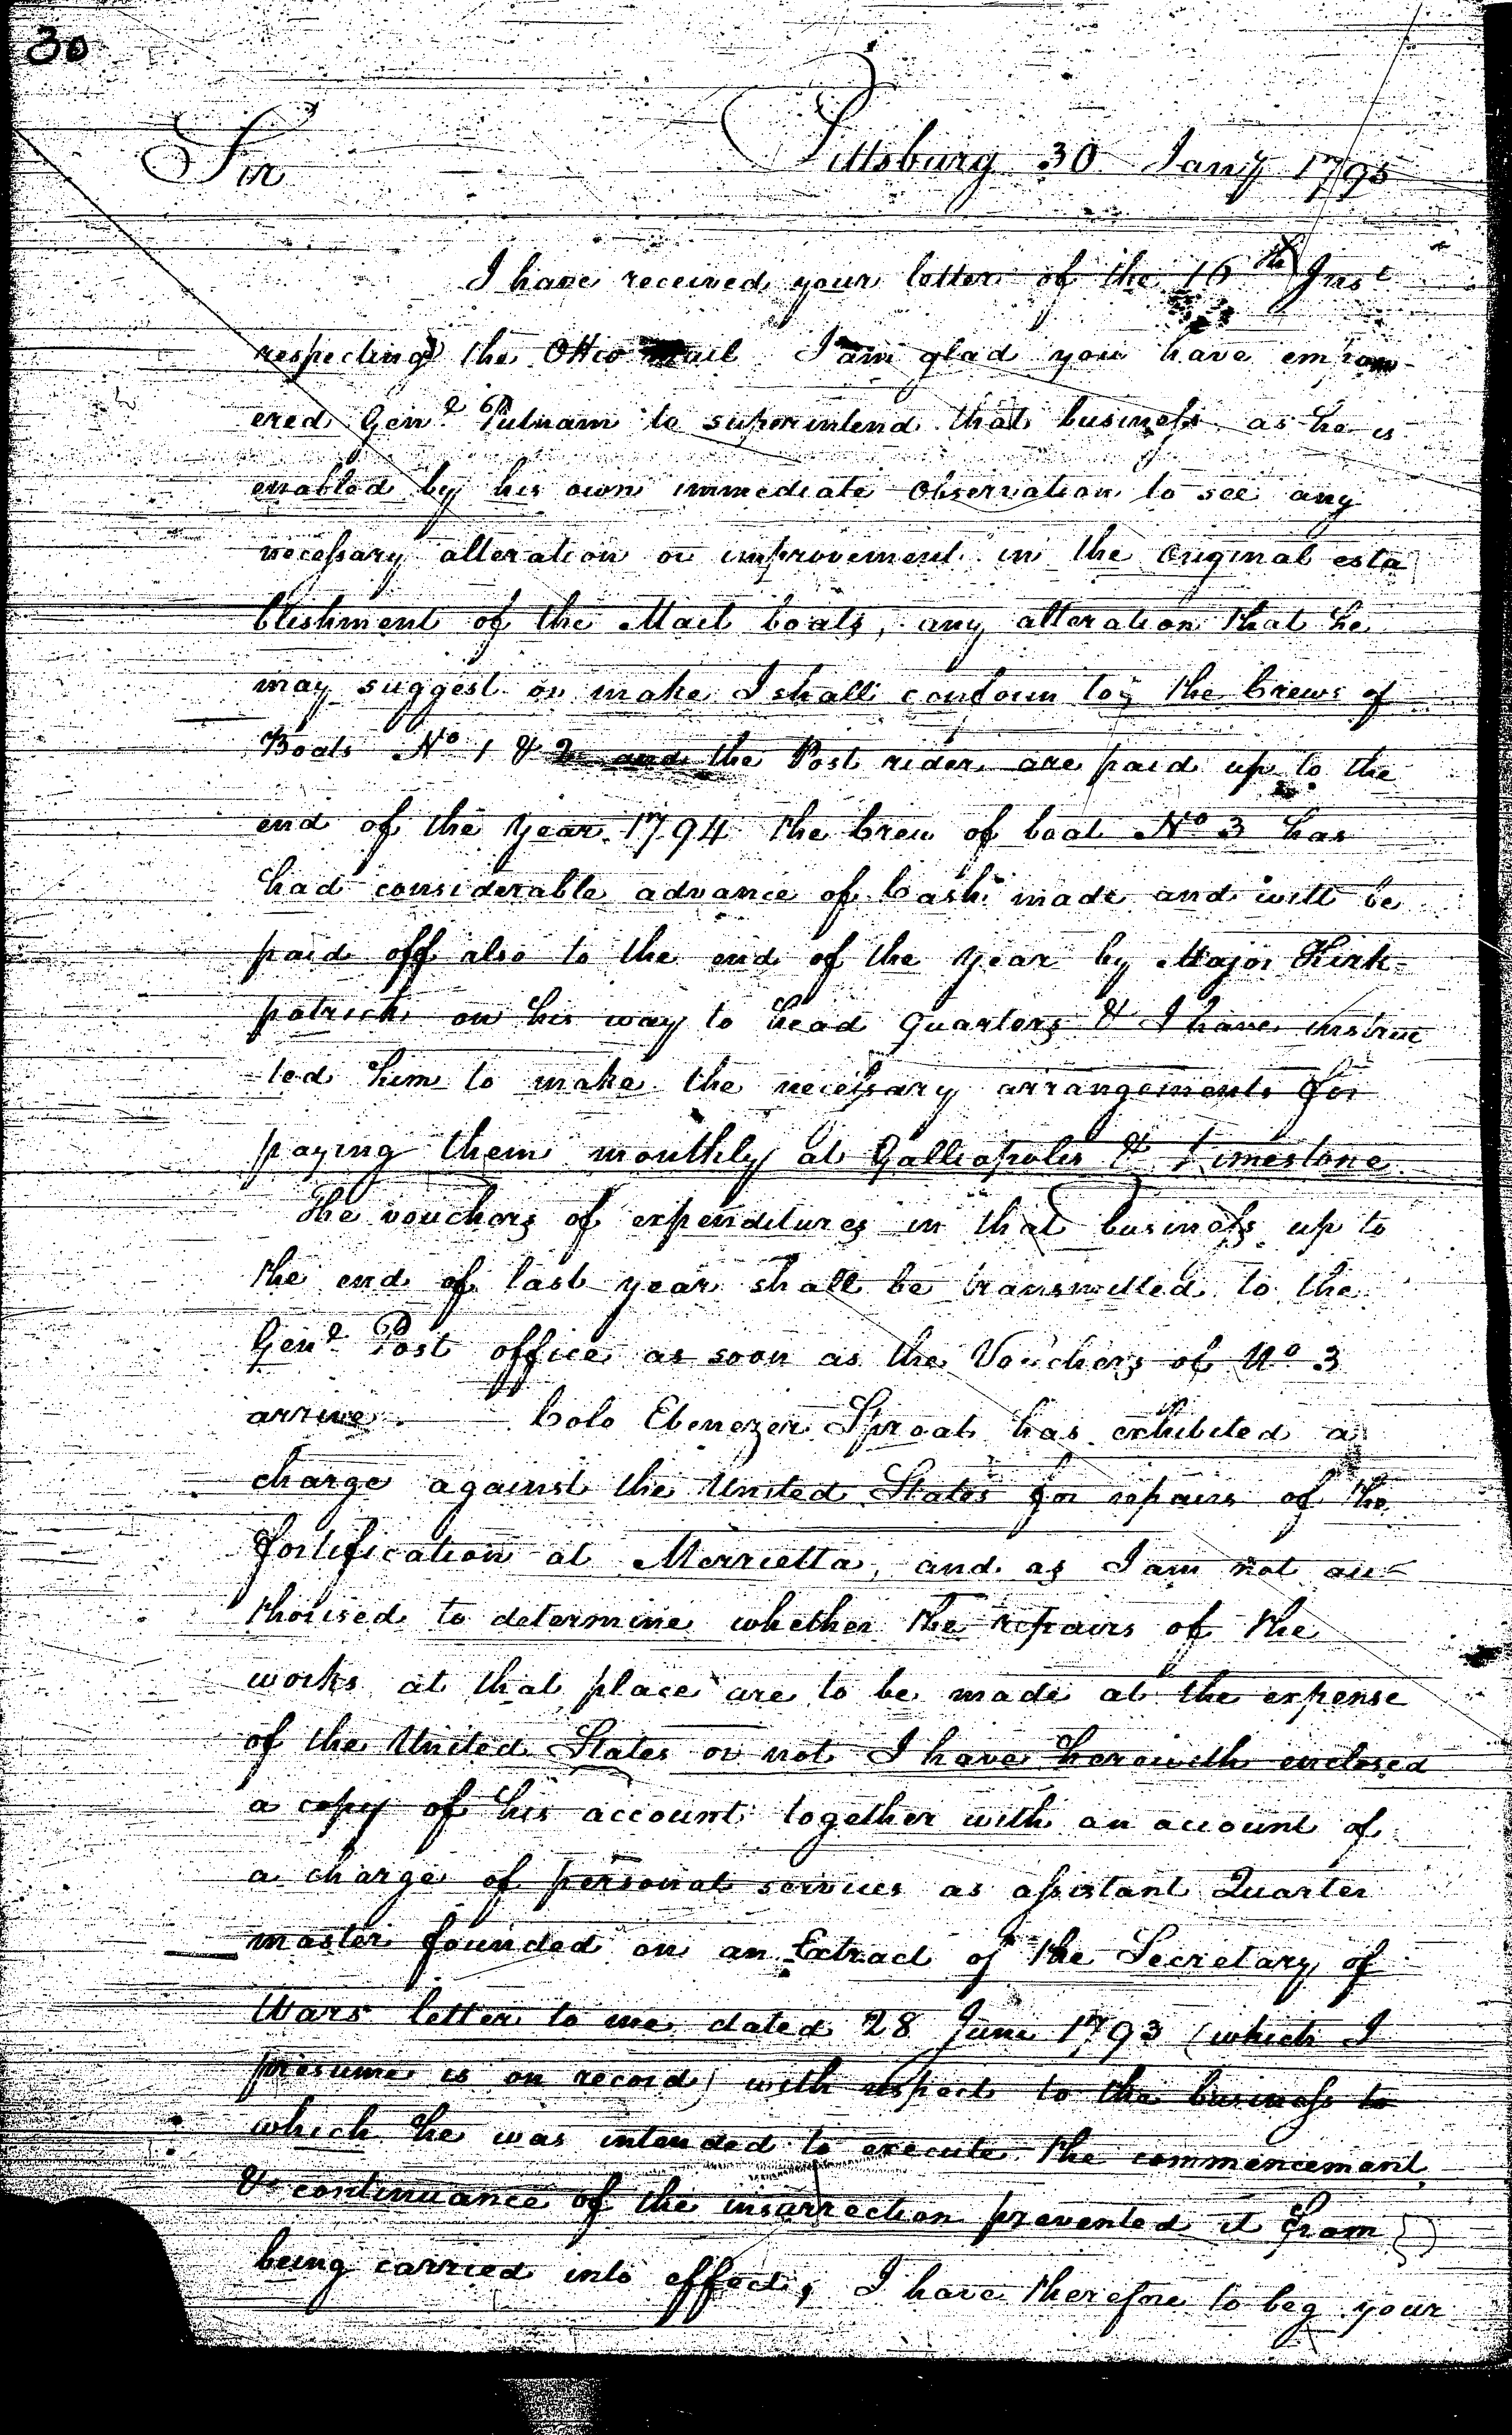 30
Sir Pittsburg 30 Jany 1795
I have received your letter of the 16th Inst
respecting the Ohio mail I am glad you have empow-
ered Genl Putnam to superintend that business as he is
enabled by his own immediate observation to see any
necessary alteration or improvement in the original esta
blishment of the Mail boats, any alteration that he
may suggest or make I shall conform to, the Crews of
Boats No 1 & 2 and the Post rider are paid up to the
end of the Year 1794 the Crew of boat No 3 has
had considerable advance of Cash made and will be
paid off also to the end of the Year by Major Kirk-
patrick on his way to head Quarters & I have instruc
-ted him to make the necessary arrangements for
paying them monthly at Galliapolis & Limestone.
The vouchers of expenditures in that business up to
the end of last year shall be transmitted to the
Genl Post office as soon as the Vouchers of No 3
arrive. Colo Ebenezer Sproat has exhibited a
charge against the United States for repairs of the
fortification at Merrietta, and as I am not au-
thorised to determine whether the repairs of the
works at that place are to be made at the expense
of the United States or not I have herewith enclosed
a copy of his account together with an account of
a charge of personal services as assistant Quarter
master founded on an Extract of the Secretary of
Wars letter to me dated 28 June 1793 (which I
presume is on record) with respect to the business to
which he was intended to execute the commencement
& continuance of the insurrection prevented it from
being carried into effect, I have therefore to beg your